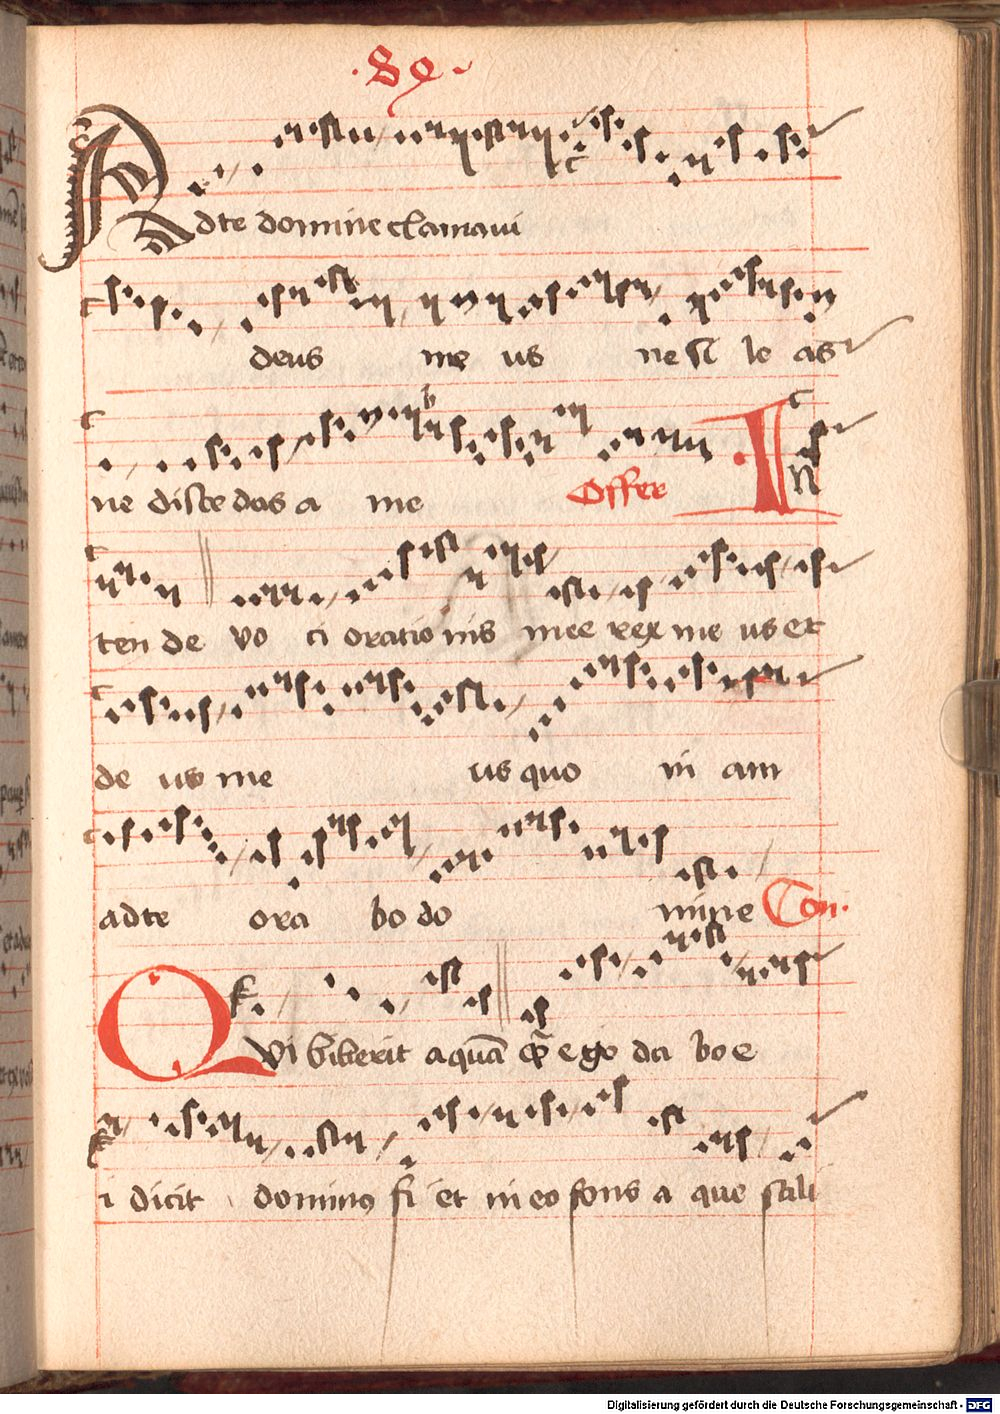 ·89·
Adte domine clamavi
deus me us ne sil le as
ne disce das a me Offer In
ten de vo ci oratio nis mee rex me us et
de us me us quo ni am
adte ora bo do mine Con.
Qvi biberit aquā quā ego da bo e
i dicit dominus fi et in eo fons a que sali
Digitalisierung gefördert durch die Deutsche Forschungsgemeinschaft - DFG